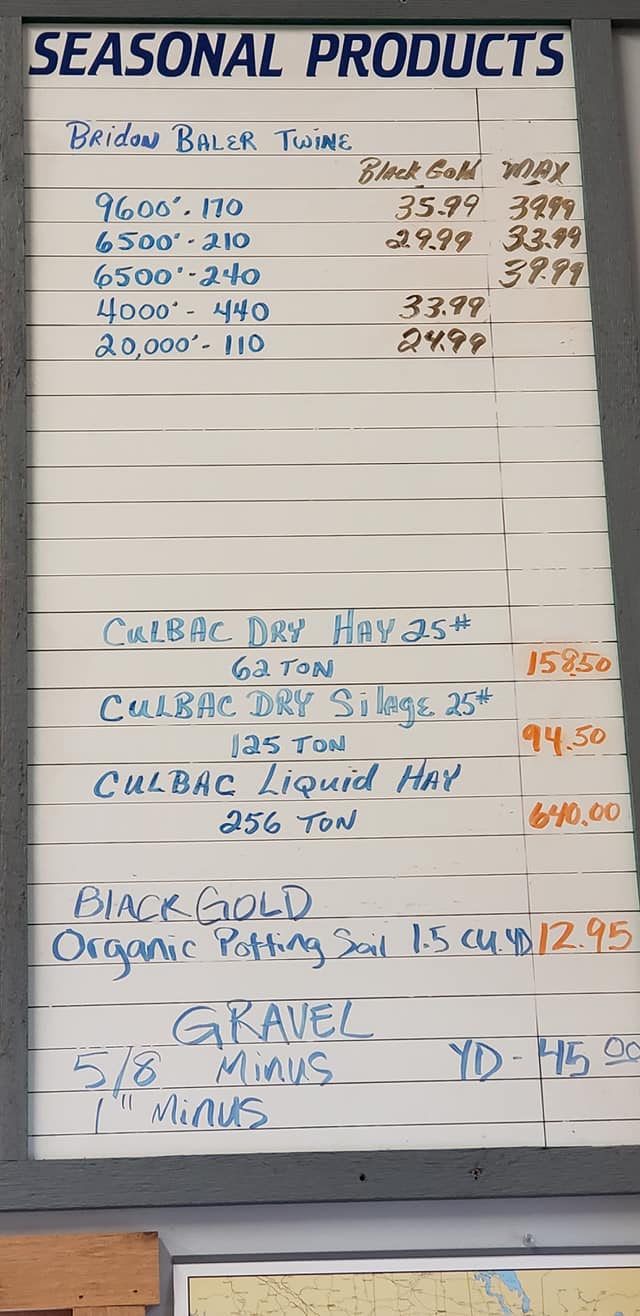 SEASONAL PRODUCTS
Bridon BALER TWINE
Black Gold MAX
9600'-170 35.99 39.99
6500'-210 29.99 33.99
6500'-240 39.99
4000'-440 33.99
20,000'-110 24.99
CULBAC DRY HAY 25#
62 TON 158.50
CULBAC DRY SilAGE 25#
125 TON 94.50
CULBAC Liquid HAY
256 TON 640.00
BLACK GOLD
Organic Potting Soil 1.5 CU.YD 12.95
GRAVEL
5/8 MINUS YD - 45 00
1" MINUS